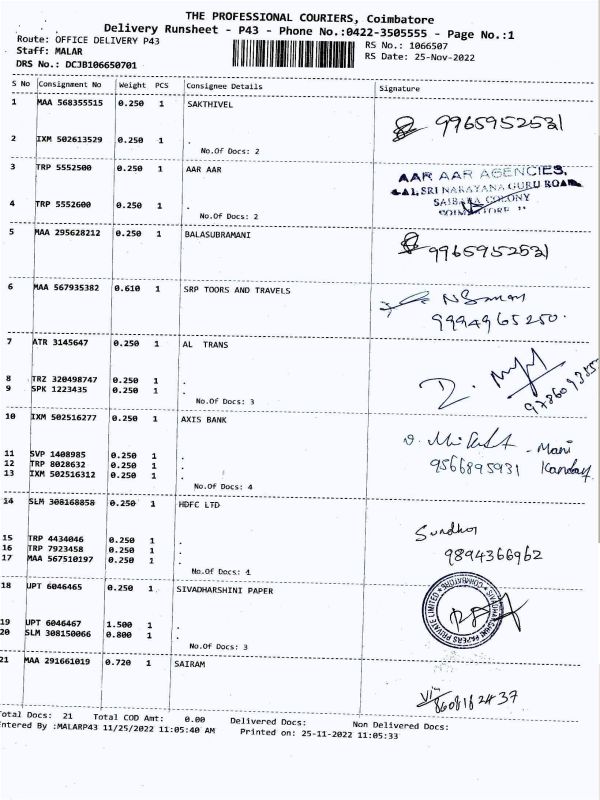 THE PROFESSIONAL COURIERS, Coimbatore
Delivery Runsheet - P43 - Phone No.:0422-3505555 - Page No.:1
Route: OFFICE DELIVERY P43
RS No.: 1066507
Staff: MALAR
RS Date: 25-Nov-2022
DRS No.: DCJB106650701
S No Consignment No Weight PCS Consignee Details Signature
1 MAA 568355515 0.250 1 SAKTHIVEL
9965952531
2 IXM 502613529 0.250 1 .
No.Of Docs: 2
3 TRP 5552500 0.250 1 AAR AAR
AAR AAR AGENCIES,
SRI NARAYANA GURU ROAD
SAIBABA COLONY
4 TRP 5552600 0.250 1 .
COIMBATORE
No.Of Docs: 2
5 MAA 295628212 0.250 1 BALASUBRAMANI
9965952531
6 MAA 567935382 0.610 1 SRP TOORS AND TRAVELS
9994965250.
7 ATR 3145647 0.250 1 AL TRANS
8 TRZ 320498747 0.250 1 .
9 SPK 1223435 0.250 1 .
No.Of Docs: 3
10 IXM 502516277 0.250 1 AXIS BANK
- Mani
11 SVP 1408985 0.250 1 .
12 TRP 8028632 0.250 1 .
9566895931
13 IXM 502516312 0.250 1 .
No.Of Docs: 4
14 SLM 308168858 0.250 1 HDFC LTD
15 TRP 4434046 0.250 1 .
16 TRP 7923458 0.250 1 .
9894366962
17 MAA 567510197 0.250 1 .
No.Of Docs: 4
18 UPT 6046465 0.250 1 SIVADHARSHINI PAPER
SIVADHARSHINI PAPERS PRIVATE LIMITED COIMBATORE
19 UPT 6046467 1.500 1 .
20 SLM 308150066 0.800 1 .
No.Of Docs: 3
21 MAA 291661019 0.720 1 SAIRAM
Total Docs: 21 Total COD Amt: 0.00 Delivered Docs: Non Delivered Docs:
Entered By :MALARP43 11/25/2022 11:05:40 AM Printed on: 25-11-2022 11:05:33